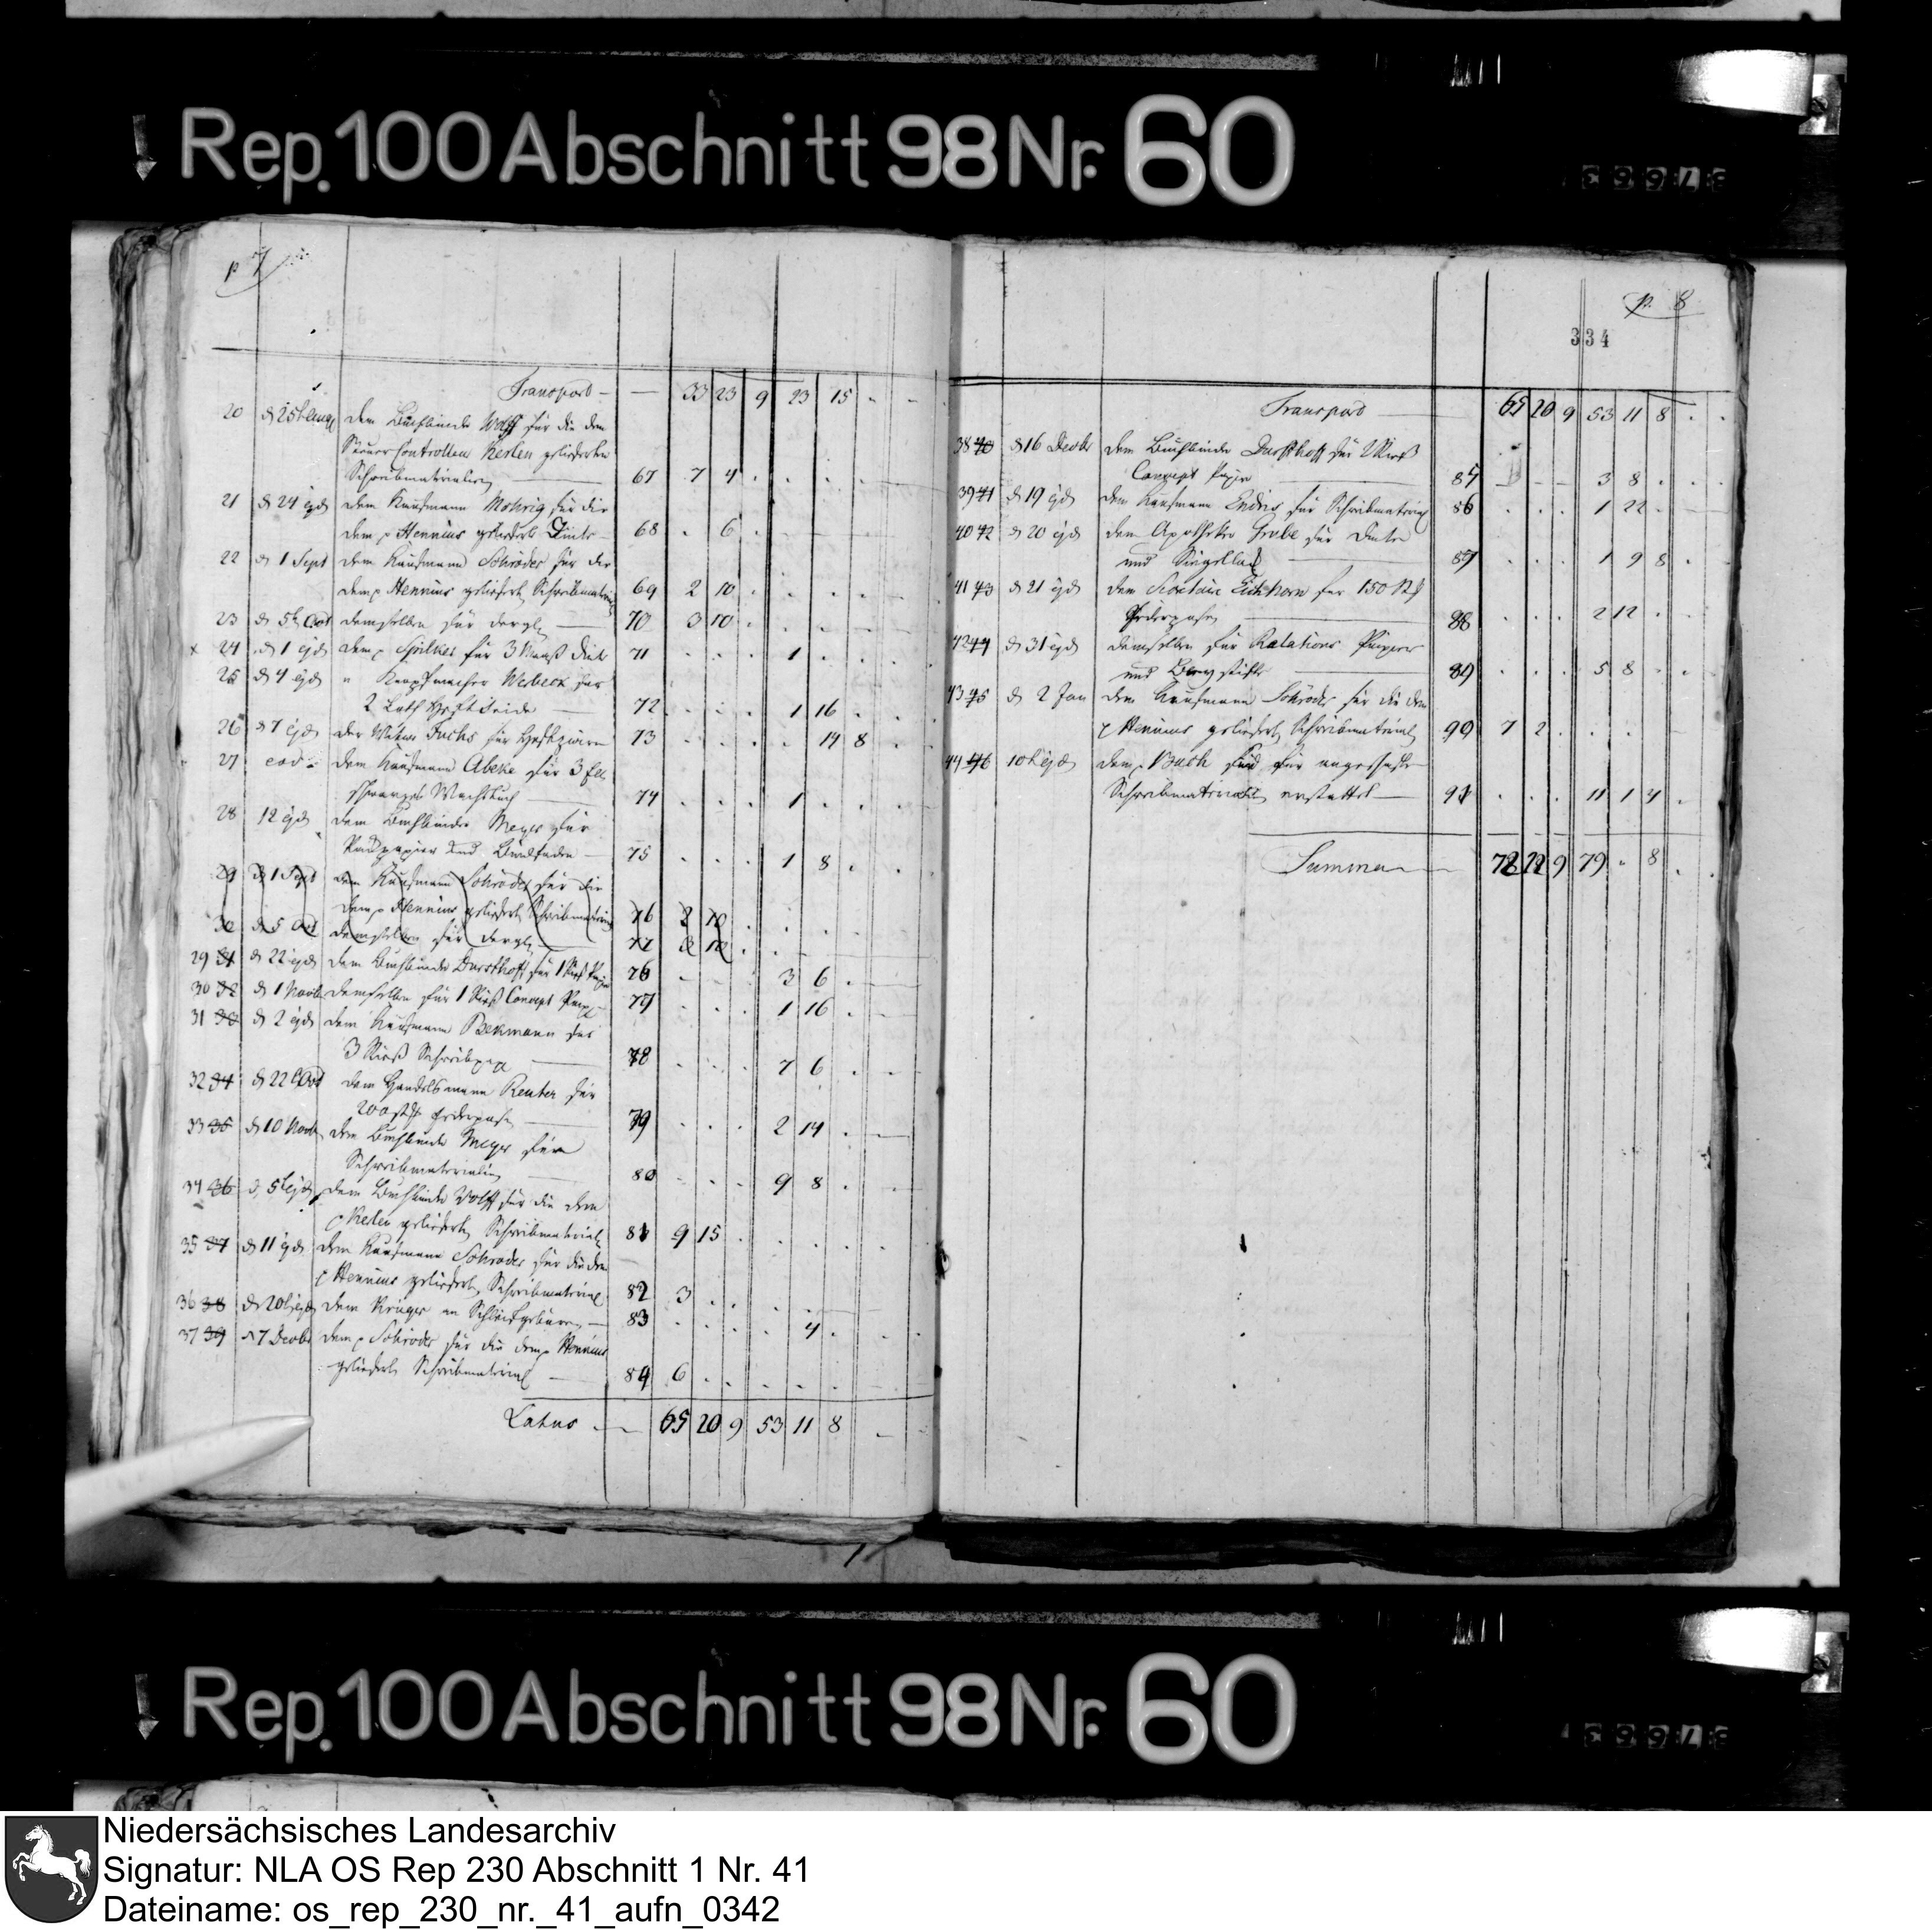 Rep. 100 Abschnitt 98 Nr. 60
37663
p 7
Transport — 33 23 9 23 15 . -
20 d 25t Aug dem Buchbinder Wolff für die dem
Steuer Controlleur Kerlen gelieferten
Schreibmaterialien 67 7 4 . . . .
21 d 24 ejd dem Kaufmann Mohrig für die
dem p Hennius gelieferte Dinte 68 . 6 .
22 d 1 Sept dem Kaufmann Schröder für die
dem p Hennius geliefert Schreibmaterial 69 2 10 . . . .
23 d 5t Oct demselben für dergl 70 3 10 .
x 24 d 1 ejd dem p Spilker für 3 Maaß Dinte 71 . . . 1 . .
25 d 4 ejd " Knopfmacher Werbeck für
2 Loth Heft Seide 72 . . . 1 16 .
26 d 7 ejd der Witwe Fuchs für Heftzwirn 73 . . . . 14 8
27 eod dem Kaufmann Abeke für 3
schwarzes Wachstuch 74 . . . 1 . .
28 12 ejd dem Buchbinder Meyer für
Packpapier und Bindfaden 75 . . . 1 8 .
29 d 1 Sept dem Kaufmann Schröder für die
dem p Hennius geliefert Schreibmaterial 76 2 10 .
30 d 5 Oct demselben für dergl 77 3 10 .
29 31 d 22 ejd dem Buchbinder Dursthoff für 1 Rieß Papier 76 . . . 3 6 .
30 32 d 1 Novbr demselben für 1 Rieß Concept Papier 77 . . . 1 16 .
31 33 d 2 ejd dem Kaufmann Bekmann für
3 Rieß Schreibpap 78 . . . 7 6 .
32 34 d 22 Oct dem Handelsmann Reuter für
200 Federposen 79 . . . 2 14 .
33 35 d 10 Novb dem Buchbinder Meyer für
Schreibmaterialien 80 . . . 9 8 .
34 36 d 5t ejd dem Buchbinder Wolff für die dem
p Kerlen gelieferten Schreibmaterial 81 9 15 . . . .
35 37 d 11 ejd dem Kaufmann Schröder für die dem
p Hennius geliefert Schreibmaterial 82 3 . . . .
36 38 d 20t ejd dem Krüger an Schleifgebühren 83 . . . . 4 .
37 39 d 7 Decbr dem p Schröder für die dem p Hennius
geliefert Schreibmaterial 84 6 . . . . .
Latus 65 20 9 53 11 8
p. 8
334
Transport 65 20 9 53 11 8 . .
38 40 d 16 Decbr dem Buchbinder Dursthoff für 2 Rieß
Concept Papier 85 - - - 3 8 . .
39 41 d 19 ejd dem Kaufmann Enders für Schreibmaterial 86 . . . 1 22 .
40 42 d 20 ejd dem Apotheker Grube für Dinte
und Siegellack 87 . . . 1 9 8 .
41 43 d 21 ejd dem Secretair Eichhorn für 150 St
Federposen 88 . . . 2 12 .
42 44 d 31 ejd demselben für Relations Papier
und Bleystifte 89 . . . 5 8 . .
43 45 d 2 Jan dem Kaufmann Schröder für die dem
p Hennius geliefert Schreibmaterial 90 7 2 . . . .
44 46 10t ejd dem p Busch sind für angeschaffte
Schreibmaterial erstattet 91 . . . 11 1 4 .
Summa 72 22 9 79 . 8
Rep. 100 Abschnitt 98 Nr. 60
37663
Niedersächsisches Landesarchiv
Signatur: NLA OS Rep 230 Abschnitt 1 Nr. 41
Dateiname: os_rep_230_nr._41_aufn_0342